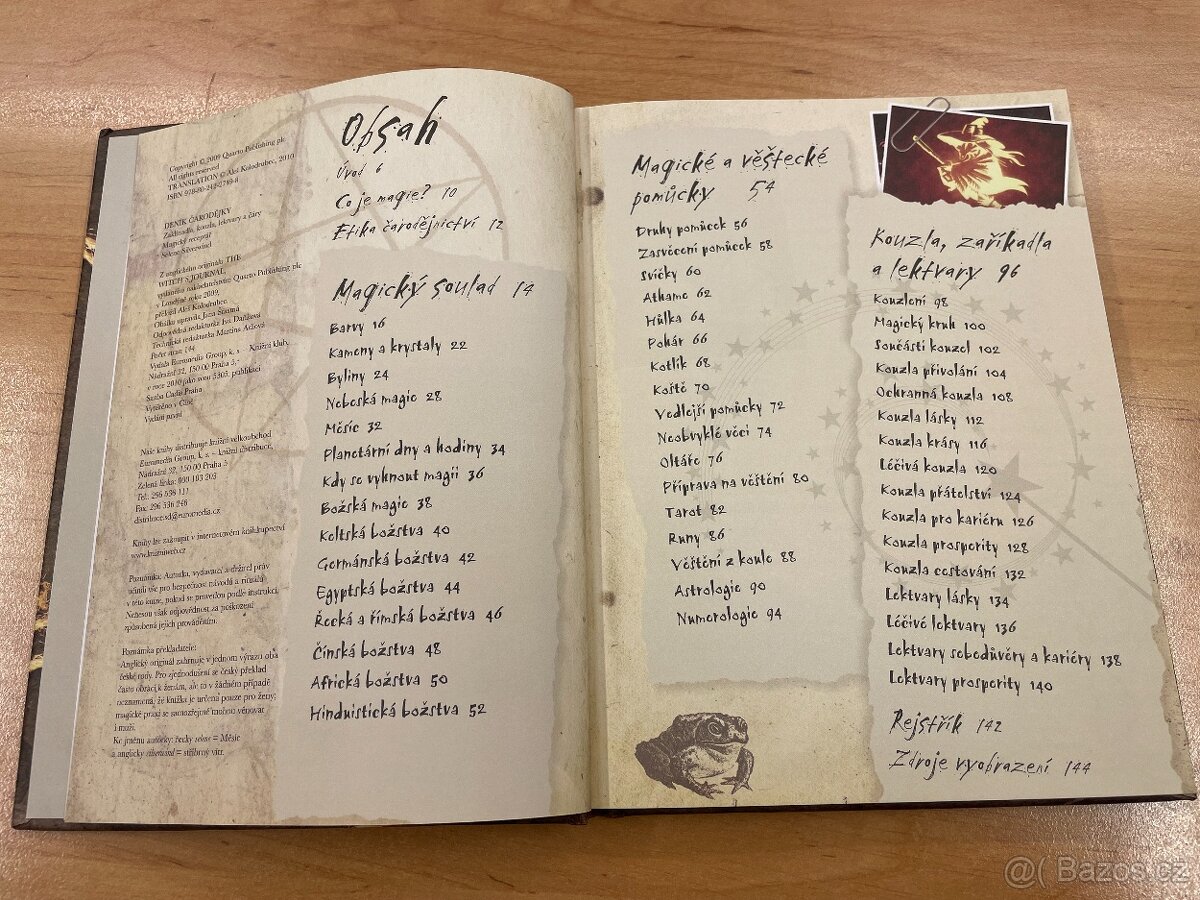 Copyright © 2009 Quarto Publishing plc
All rights reserved
TRANSLATION © Aleš Kolodrubec, 2010
DENÍK ČARODĚJKY
Zaklínadla, kouzla, lektvary a čáry
Magický receptář
Selene Silverwind
Z anglického originálu THE
WITCH'S JOURNAL,
vydaného nakladatelstvím Quarto Publishing plc
v Londýně roku 2009,
přeložil Aleš Kolodrubec
Odpovědná redaktorka Iva Daňková
Technická redaktorka Martina Adlová
Počet stran 144
Vydala Euromedia Group, k. s. – Knižní klub,
Nádražní 32, 150 00 Praha 5,
v roce 2010 jako svou 5303. publikaci
Sazba Cadis Praha
Vytištěno v Číně
Vydání první
Naše knihy distribuuje knižní velkoobchod
Euromedia Group, k. s. – knižní distribuce,
Nádražní 32, 150 00 Praha 5
Zelená linka: 800 103 203
Tel.: 296 536 111
Fax: 296 536 246
distribuce.vd@euromedia.cz
Knihy lze zakoupit v internetovém knihkupectví
www.knizniweb.cz
Poznámka: Autorka, vydavatel a držitel práv
učinili vše pro bezpečnost návodů a rituálů
v této knize, pokud se provedou podle instrukcí.
Nenesou však odpovědnost za poškození
způsobená jejich prováděním.
Poznámka překladatele:
Anglický originál zahrnuje v jednom výrazu oba
české rody. Pro zjednodušení se český překlad
často obrací k ženám, ale to v žádném případě
neznamená, že knížka je určená pouze pro ženy;
magické praxi se samozřejmě mohou věnovat
i muži.
Ke jménu autorky: řecky selene = Měsíc
a anglicky silverwind = stříbrný vítr.
Obsah
Úvod 6
Co je magie? 10
Etika čarodějnictví 12
Magický soulad 14
Barvy 16
Kameny a krystaly 22
Byliny 24
Nebeská magie 28
Měsíc 32
Planetární dny a hodiny 34
Kdy se vyhnout magii 36
Božská magie 38
Keltská božstva 40
Germánská božstva 42
Egyptská božstva 44
Řecká a římská božstva 46
Čínská božstva 48
Africká božstva 50
Hinduistická božstva 52
Magické a věštecké
pomůcky 54
Druhy pomůcek 56
Zasvěcení pomůcek 58
Svíčky 60
Athame 62
Hůlka 64
Pohár 66
Kotlík 68
Koště 70
Vedlejší pomůcky 72
Neobvyklé věci 74
Oltáře 76
Příprava na věštění 80
Tarot 82
Runy 86
Věštění z koule 88
Astrologie 90
Numerologie 94
Kouzla, zaříkadla
a lektvary 96
Kouzlení 98
Magický kruh 100
Součásti kouzel 102
Kouzla přivolání 104
Ochranná kouzla 108
Kouzla lásky 112
Kouzla krásy 116
Léčivá kouzla 120
Kouzla přátelství 124
Kouzla pro kariéru 126
Kouzla prosperity 128
Kouzla cestování 132
Lektvary lásky 134
Léčivé lektvary 136
Lektvary sebedůvěry a kariéry 138
Lektvary prosperity 140
Rejstřík 142
Zdroje vyobrazení 144
@( Bazos.cz